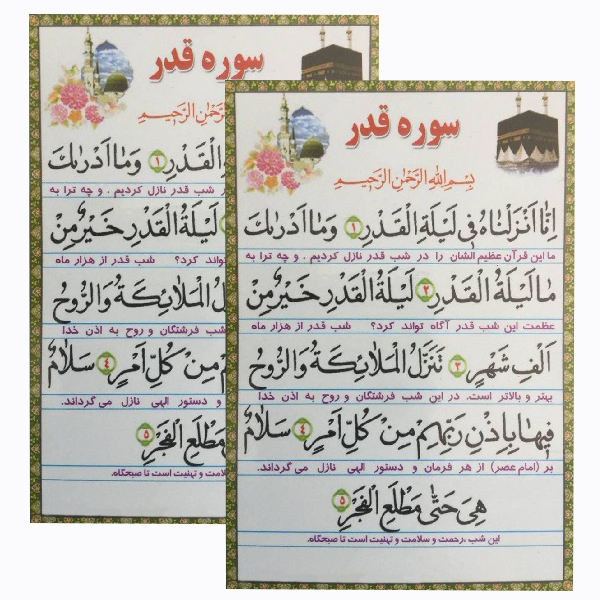 سوره قدر
بِسْمِ اللهِ الرَّحْمٰنِ الرَّحِيمِ
اِنّٰا اَنْزَلْنٰاهُ فِي لَيْلَةِ الْقَدْرِ ۱ وَمٰا اَدْرٰىكَ
ما این قرآن عظیم الشان را در شب قدر نازل کردیم . و چه ترا به
مٰا لَيْلَةُ الْقَدْرِ ۲ لَيْلَةُ الْقَدْرِ خَيْرٌ مِنْ
عظمت این شب قدر آگاه تواند کرد؟ شب قدر از هزار ماه
اَلْفِ شَهْرٍ ۳ تَنَزَّلُ الْمَلٰائِكَةُ وَالرُّوحُ
بهتر و بالاتر است. در این شب فرشتگان و روح به اذن خدا
فِيهٰا بِاِذْنِ رَبِّهِمْ مِنْ كُلِّ اَمْرٍ ۴ سَلٰامٌ
بر (امام عصر) از هر فرمان و دستور الهی نازل می گرداند.
هِيَ حَتّٰى مَطْلَعِ الْفَجْرِ ۵
این شب ,رحمت و سلامت و تهنیت است تا صبحگاه.
سوره قدر
الرَّحْمٰنِ الرَّحِيمِ
الْقَدْرِ ۱ وَمٰا اَدْرٰىكَ
شب قدر نازل کردیم . و چه ترا به
لَيْلَةُ الْقَدْرِ خَيْرٌ مِنْ
تواند کرد؟ شب قدر از هزار ماه
الْمَلٰائِكَةُ وَالرُّوحُ
شب فرشتگان و روح به اذن خدا
مِنْ كُلِّ اَمْرٍ ۴ سَلٰامٌ
و دستور الهی نازل می گرداند.
مَطْلَعِ الْفَجْرِ ۵
و تهنیت است تا صبحگاه.